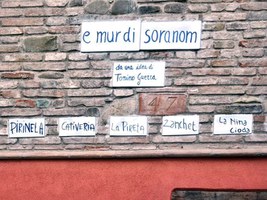 e mur di soranom
da una idea di
Tonino Guerra
47
PIRINELA
CATIVERIA
LA PIREJA
ZANCHET
La Nina
Cioda